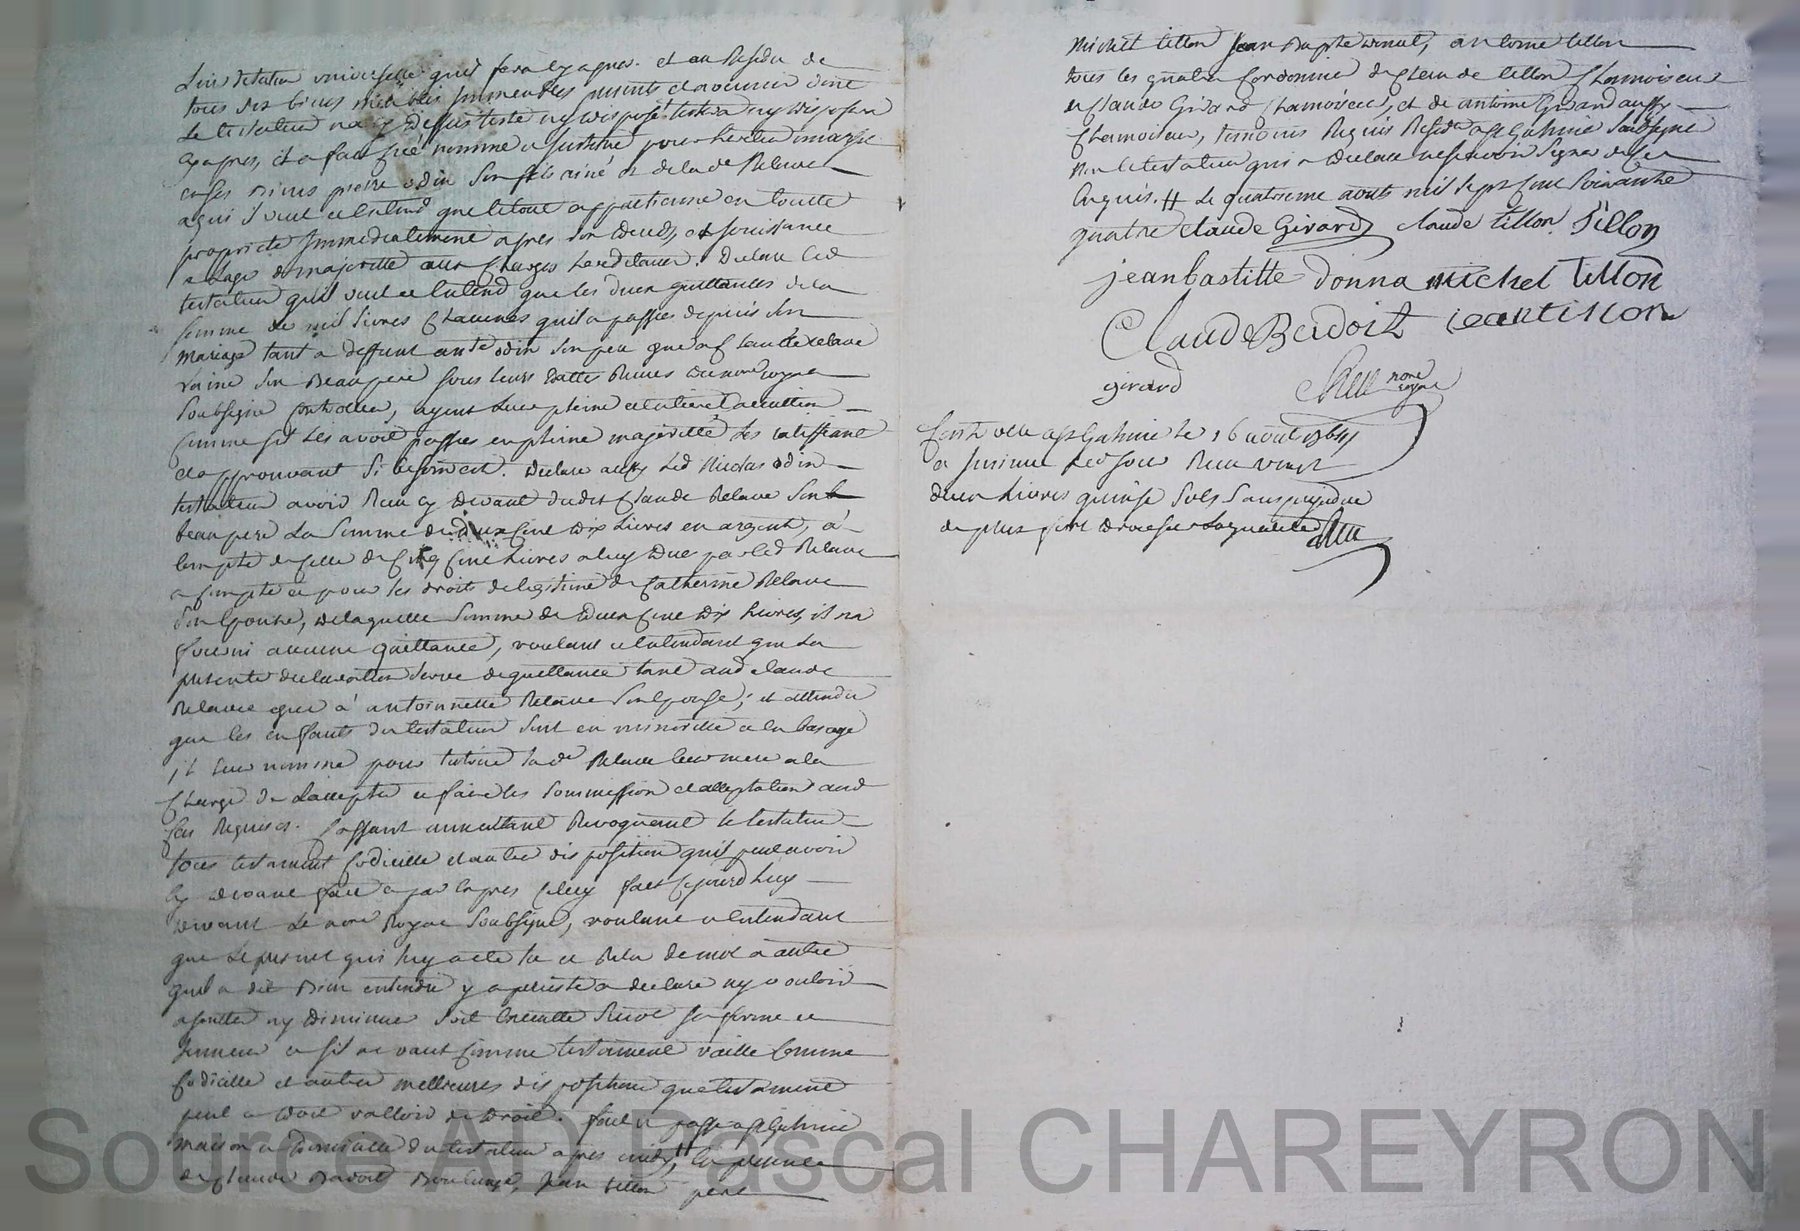 universelle quil fera cy apres. et au Residu de
tous ses biens meubles Immeubles presents et advenir dont
Le testateur na cy dessus testé ny disposé testera ny disposera
cy apres, il a fait créé nommé et Institué pour heritier
Pierre odin Son fils ainé et de lad Relave
a qui il veut et Entend que le tout appartienne en toutte
proprieté Immediatement apres son deces, et jouissance
a Lage de majorité aux Charges hereditaires. Declare led
testateur quil veut et Entend que les deux quittances de la
somme de mil Livres Chacunes quil a passées depuis Son
Mariage tant a deffunt odin Son pere que a Claude relave
Son Beaupere Sous leurs dattes Reçues du nore royal
Soubsigné Controllées, ayent Leur pleine et entiere Execution
Comme Sil Les avoit passées en pleine majorité Les ratiffiant
et approuvant Si besoin est. Declare aussy Led Nicolas odin
testateur avoir Reçu cy devant dudit Claude Relave Son
beaupere La Somme de deux Cent dix Livres en argent, à
Compte de Celle de Cinq Cent Livres a luy due par led Relave
a Compte et pour les droits de legitime de Catherine Relave
Son Epouse, de laquelle Somme de deux Cent dix Livres, il na
fourni aucune quittance, voulant et Entendant que La
presente declaration Serve de quittance tant aud Claude
Relave que à antoinnette Relave Son Epouse; et attendu
que les enfants du testateur Sont en minorité et en bas age
il leur nomme pour tutrice lade Relave leur mere a la
Charge de Laccepter et faire les Soummission et acceptation aud
Cas Requises. Cassant annullant Revoquant le testateur
tous testament Codicille et autre disposition quil peut avoir
Cy devant fait et par Expres Celuy fait Cejourd'huy
devant Le nore Royal Soubsigné, voulant et Entendant
que Le present qui luy a été lu et Relu de mot a autre
quil a dit Bien entendre y a persisté a declaré ny vouloir
ajoutter ny diminuer Soit Executté Suivt Sa forme et
teneur et Sil ne vaut Comme testament vaille Comme
Codicille et autre meilleures disposition que testament
peut et doit valloir de droit. fait et passé a St Galmier
maison et domicille du testateur apres midy, # En presence
de Claude Badoit Boulanger, Jean tillon pere
Michel tillon Jean Baptiste antoine tillon
tous les quatre Cordonnier de Claude tillon Chamoiseur
de Claude Girard Chamoiseur, et de antoine Girard aussy
Chamoiseur, temoins Requis Residt a St Galmier Soubsigné
Non le testateur qui a declaré ne Sçavoir Signer de Ce
Enquis. # Le quatrieme aouts mil Sept Cent Soixante
quatre Claude Girard Claude tillon. Tillon
jean bastitte donna michel tillon
Claude Badoit jean tillon
girard nore royal
Controllé a St Galmier le 16 aout 1764
a Insinué Led jour Reçu vingt
deux Livres quinze Sols Sans prejudice
de plus fort droit Sur La qualité
Source AD Pascal CHAREYRON